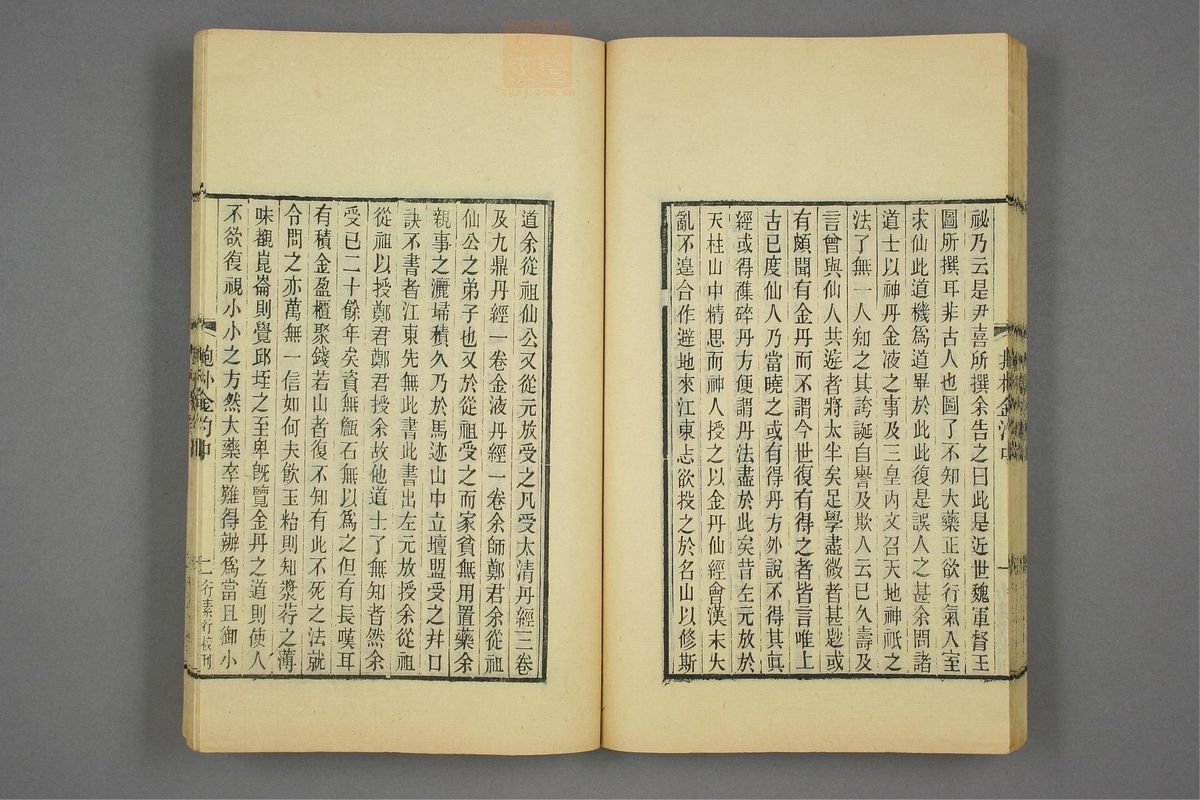 祕乃云是尹喜所撰余告之曰此是近世魏軍督王
圖所撰耳非古人也圖了不知大藥正欲行氣入室
求仙此道機爲道畢於此此復是誤人之甚余問諸
道士以神丹金液之事及三皇內文召天地神祇之
法了無一人知之其誇誕自譽及欺人云已久壽及
言曾與仙人共遊者將太半矣足學盡微者甚尠或
有頗聞有金丹而不謂今世復有得之者皆言唯上
古已度仙人乃當曉之或有得丹方外說不得其眞
經或得雜碎丹方便謂丹法盡於此矣昔左元放於
天柱山中精思而神人授之以金丹仙經會漢末大
亂不遑合作避地來江東志欲投之於名山以修斯
道余從祖仙公又從元放受之凡受太清丹經三卷
及九鼎丹經一卷金液丹經一卷余師鄭君余從祖
仙公之弟子也又於從祖受之而家貧無用置藥余
親事之灑埽積久乃於馬迹山中立壇盟受之并口
訣不書者江東先無此書此書出左元放授余從祖
從祖以授鄭君鄭君授余故他道士了無知者然余
受已二十餘年矣資無甔石無以爲之但有長嘆耳
有積金盈櫃聚錢若山者復不知有此不死之法就
令問之亦萬無一信如何夫飮玉粭則知漿荇之薄
味覩崑崙則覺邱垤之至卑旣覽金丹之道則使人
不欲復視小小之方然大藥卒難得辦爲當且御小
二
行素行校刊